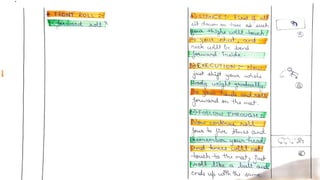 * FRONT ROLL :-
Forward roll :-
① STANCE :- First of all
sit down on toes as such
your thighs will touch
to your chest, and
neck will be bend
forward inside.
② EXECUTION :- Now
just shift your whole
body weight gradually
to your hands and roll
forward on the mat.
③ FOLLOW THROUGH :-
Now continue roll
four to five times and
remember your head
and knees will not
touch to the mat, just
roll like a ball and
ends up with the same